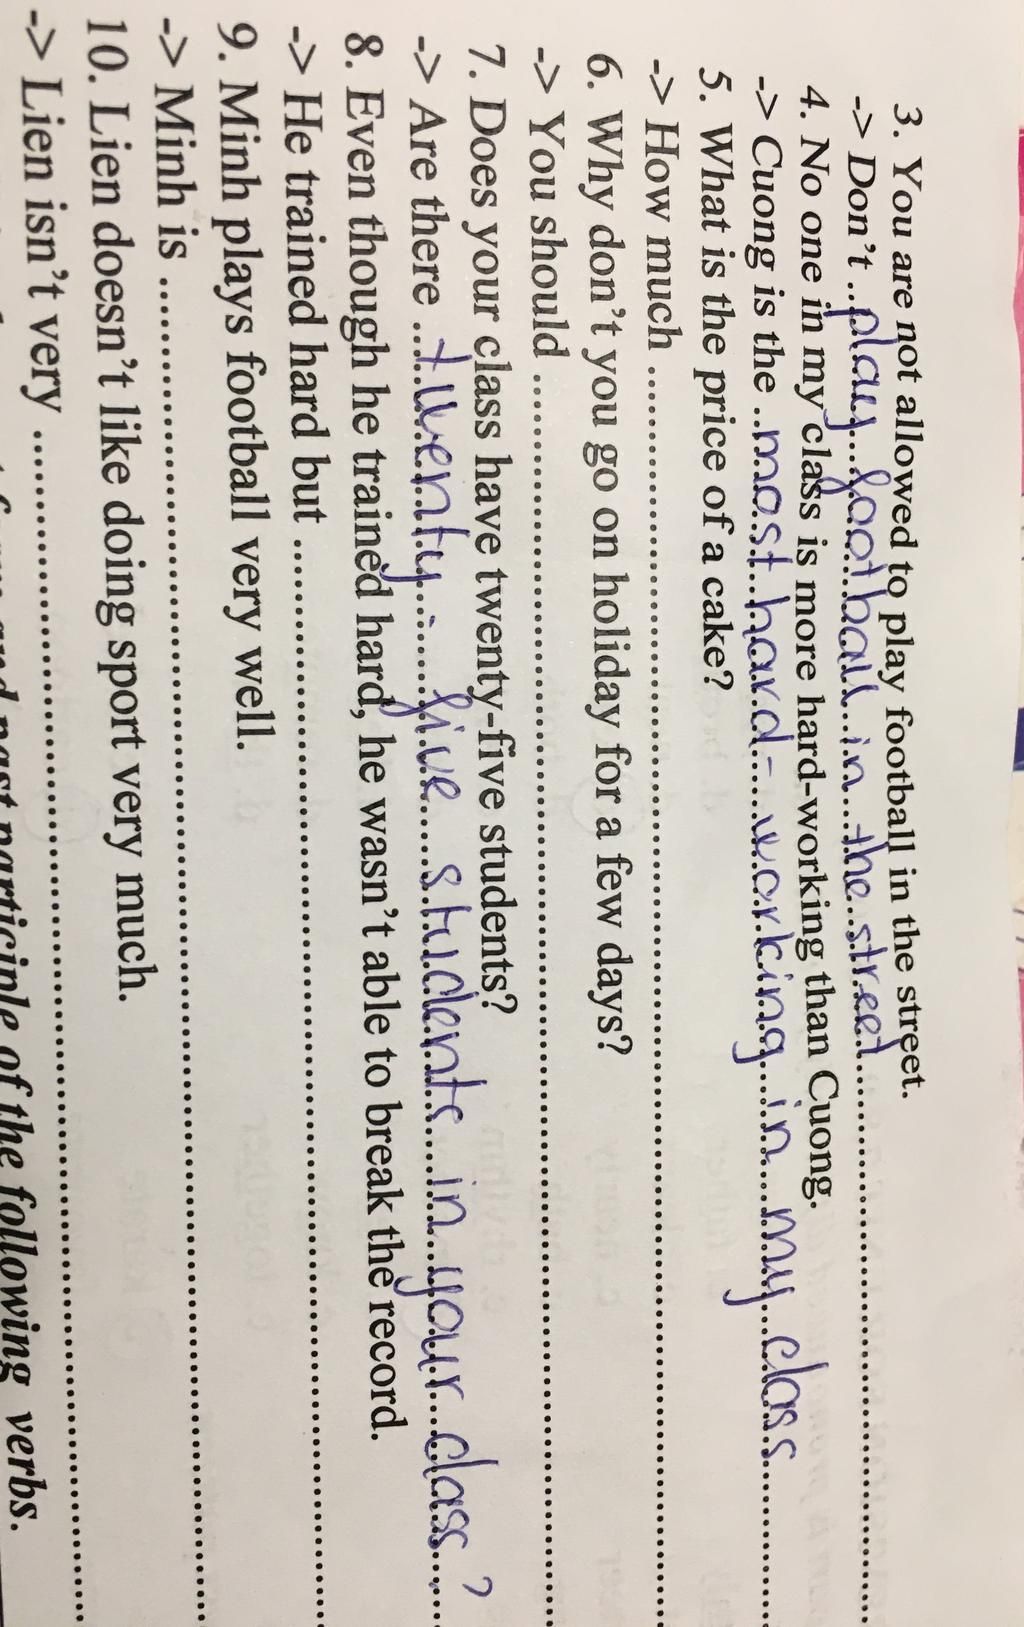 3. You are not allowed to play football in the street.
-> Don't ..play...football...in...the...street.................................
4. No one in my class is more hard-working than Cuong.
-> Cuong is the ..most hard-...working...in...my...class...............
5. What is the price of a cake?
-> How much ......................................................................................
6. Why don't you go on holiday for a few days?
-> You should ......................................................................................
7. Does your class have twenty-five students?
-> Are there ...twenty-......five.....students...in...your...class....?
8. Even though he trained hard, he wasn't able to break the record.
-> He trained hard but ......................................................................................
9. Minh plays football very well.
-> Minh is ......................................................................................
10. Lien doesn't like doing sport very much.
-> Lien isn't very ......................................................................................
and past participle of the following verbs.